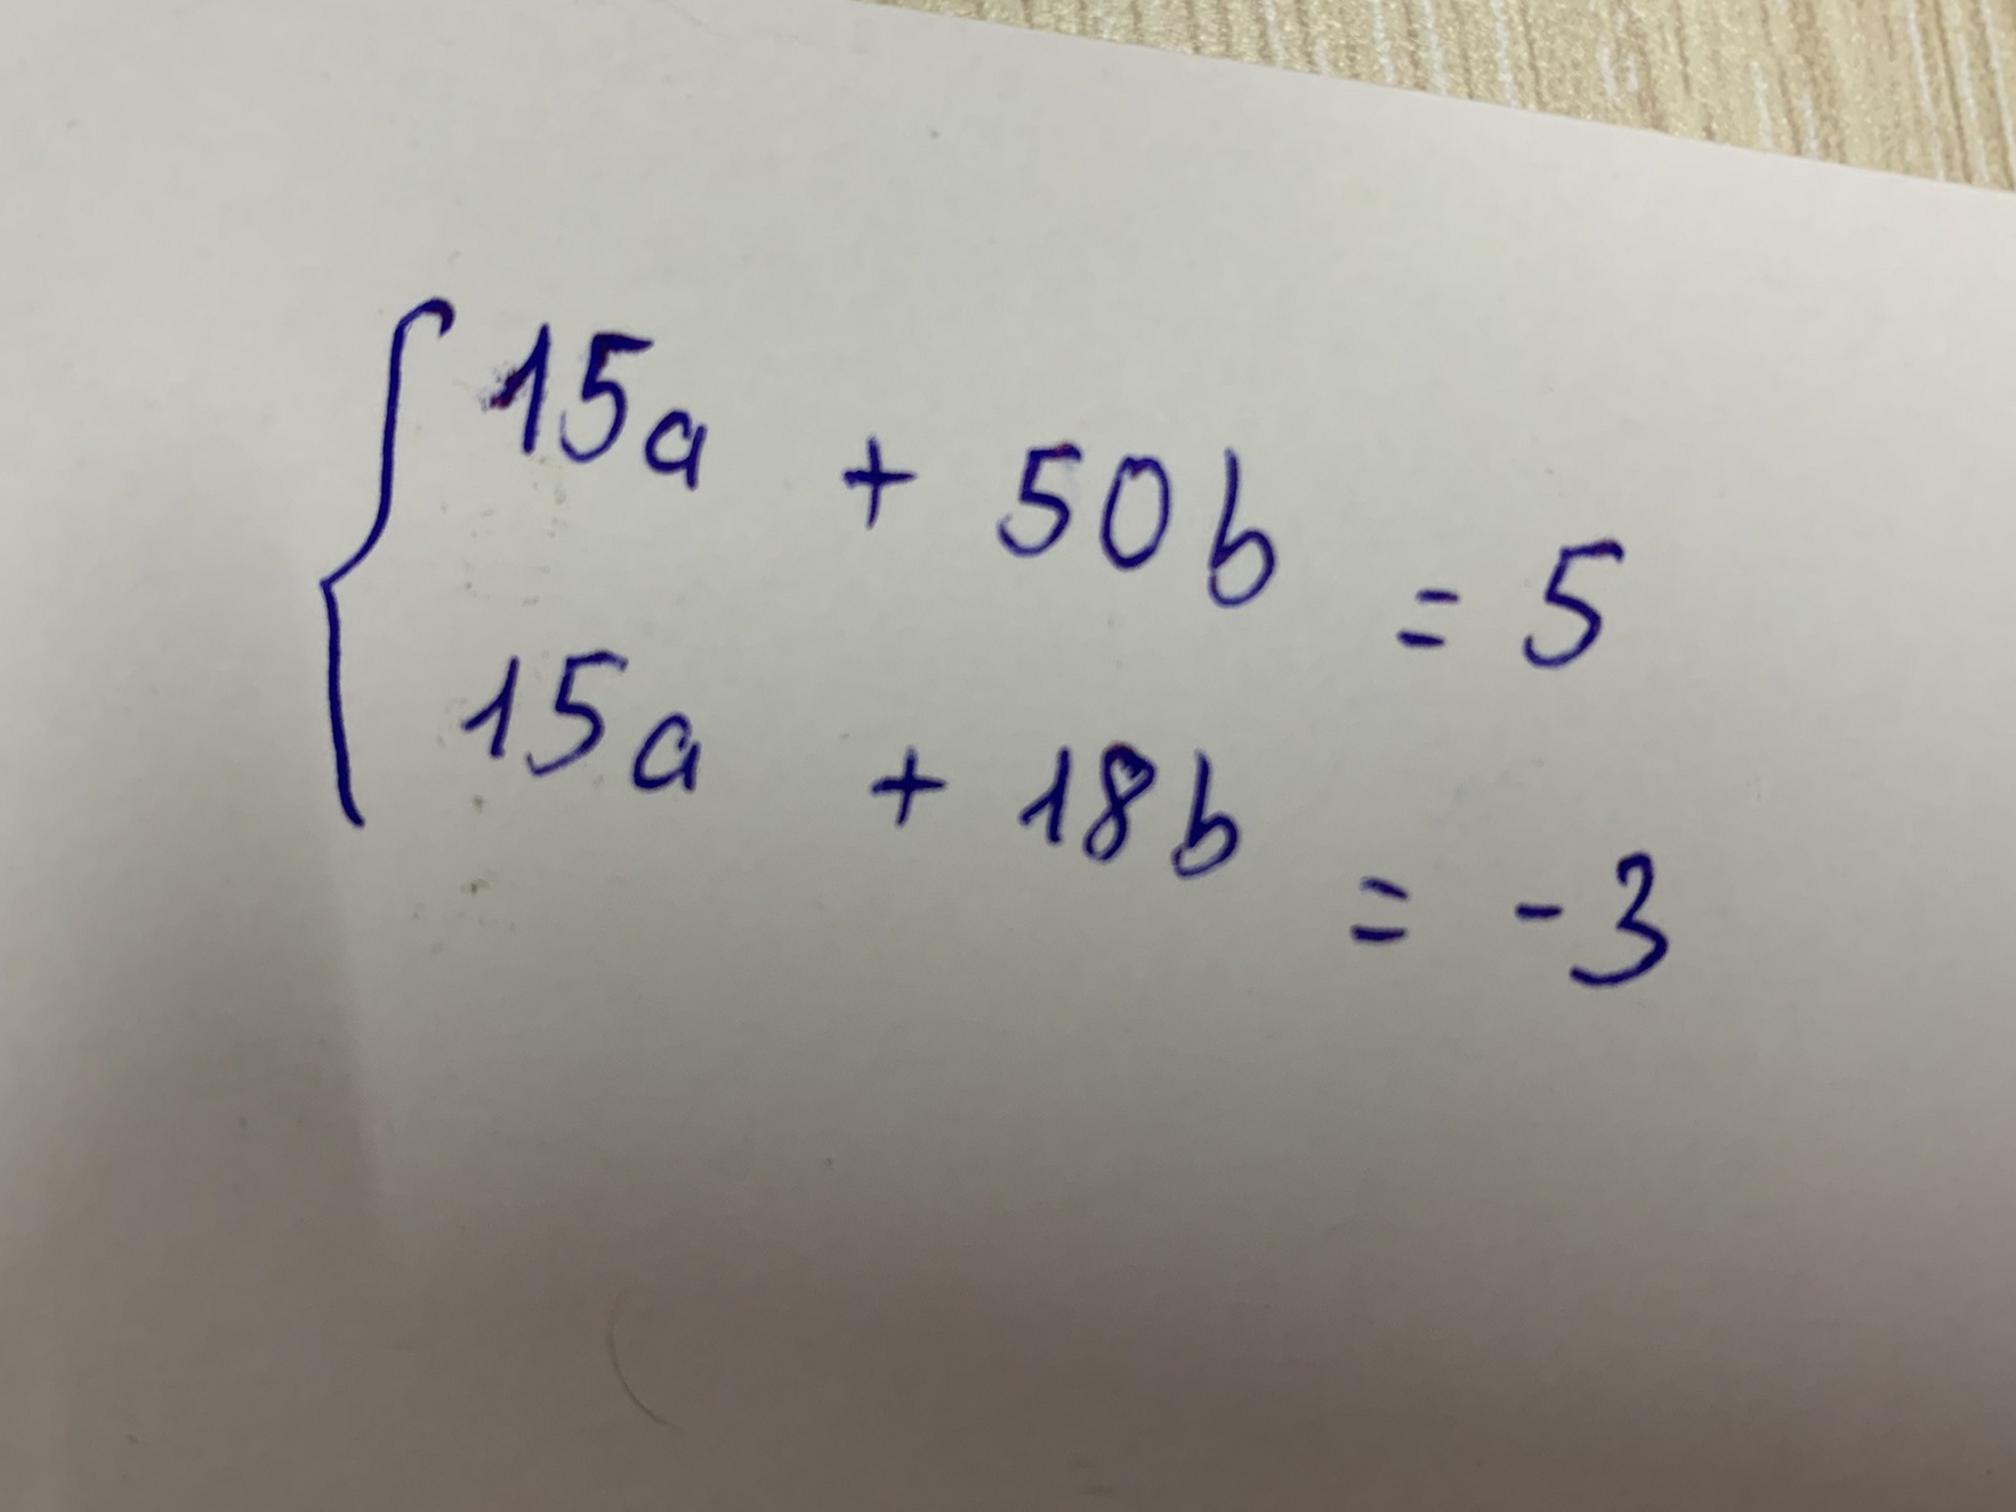 15a + 50b = 5
15a + 18b = -3